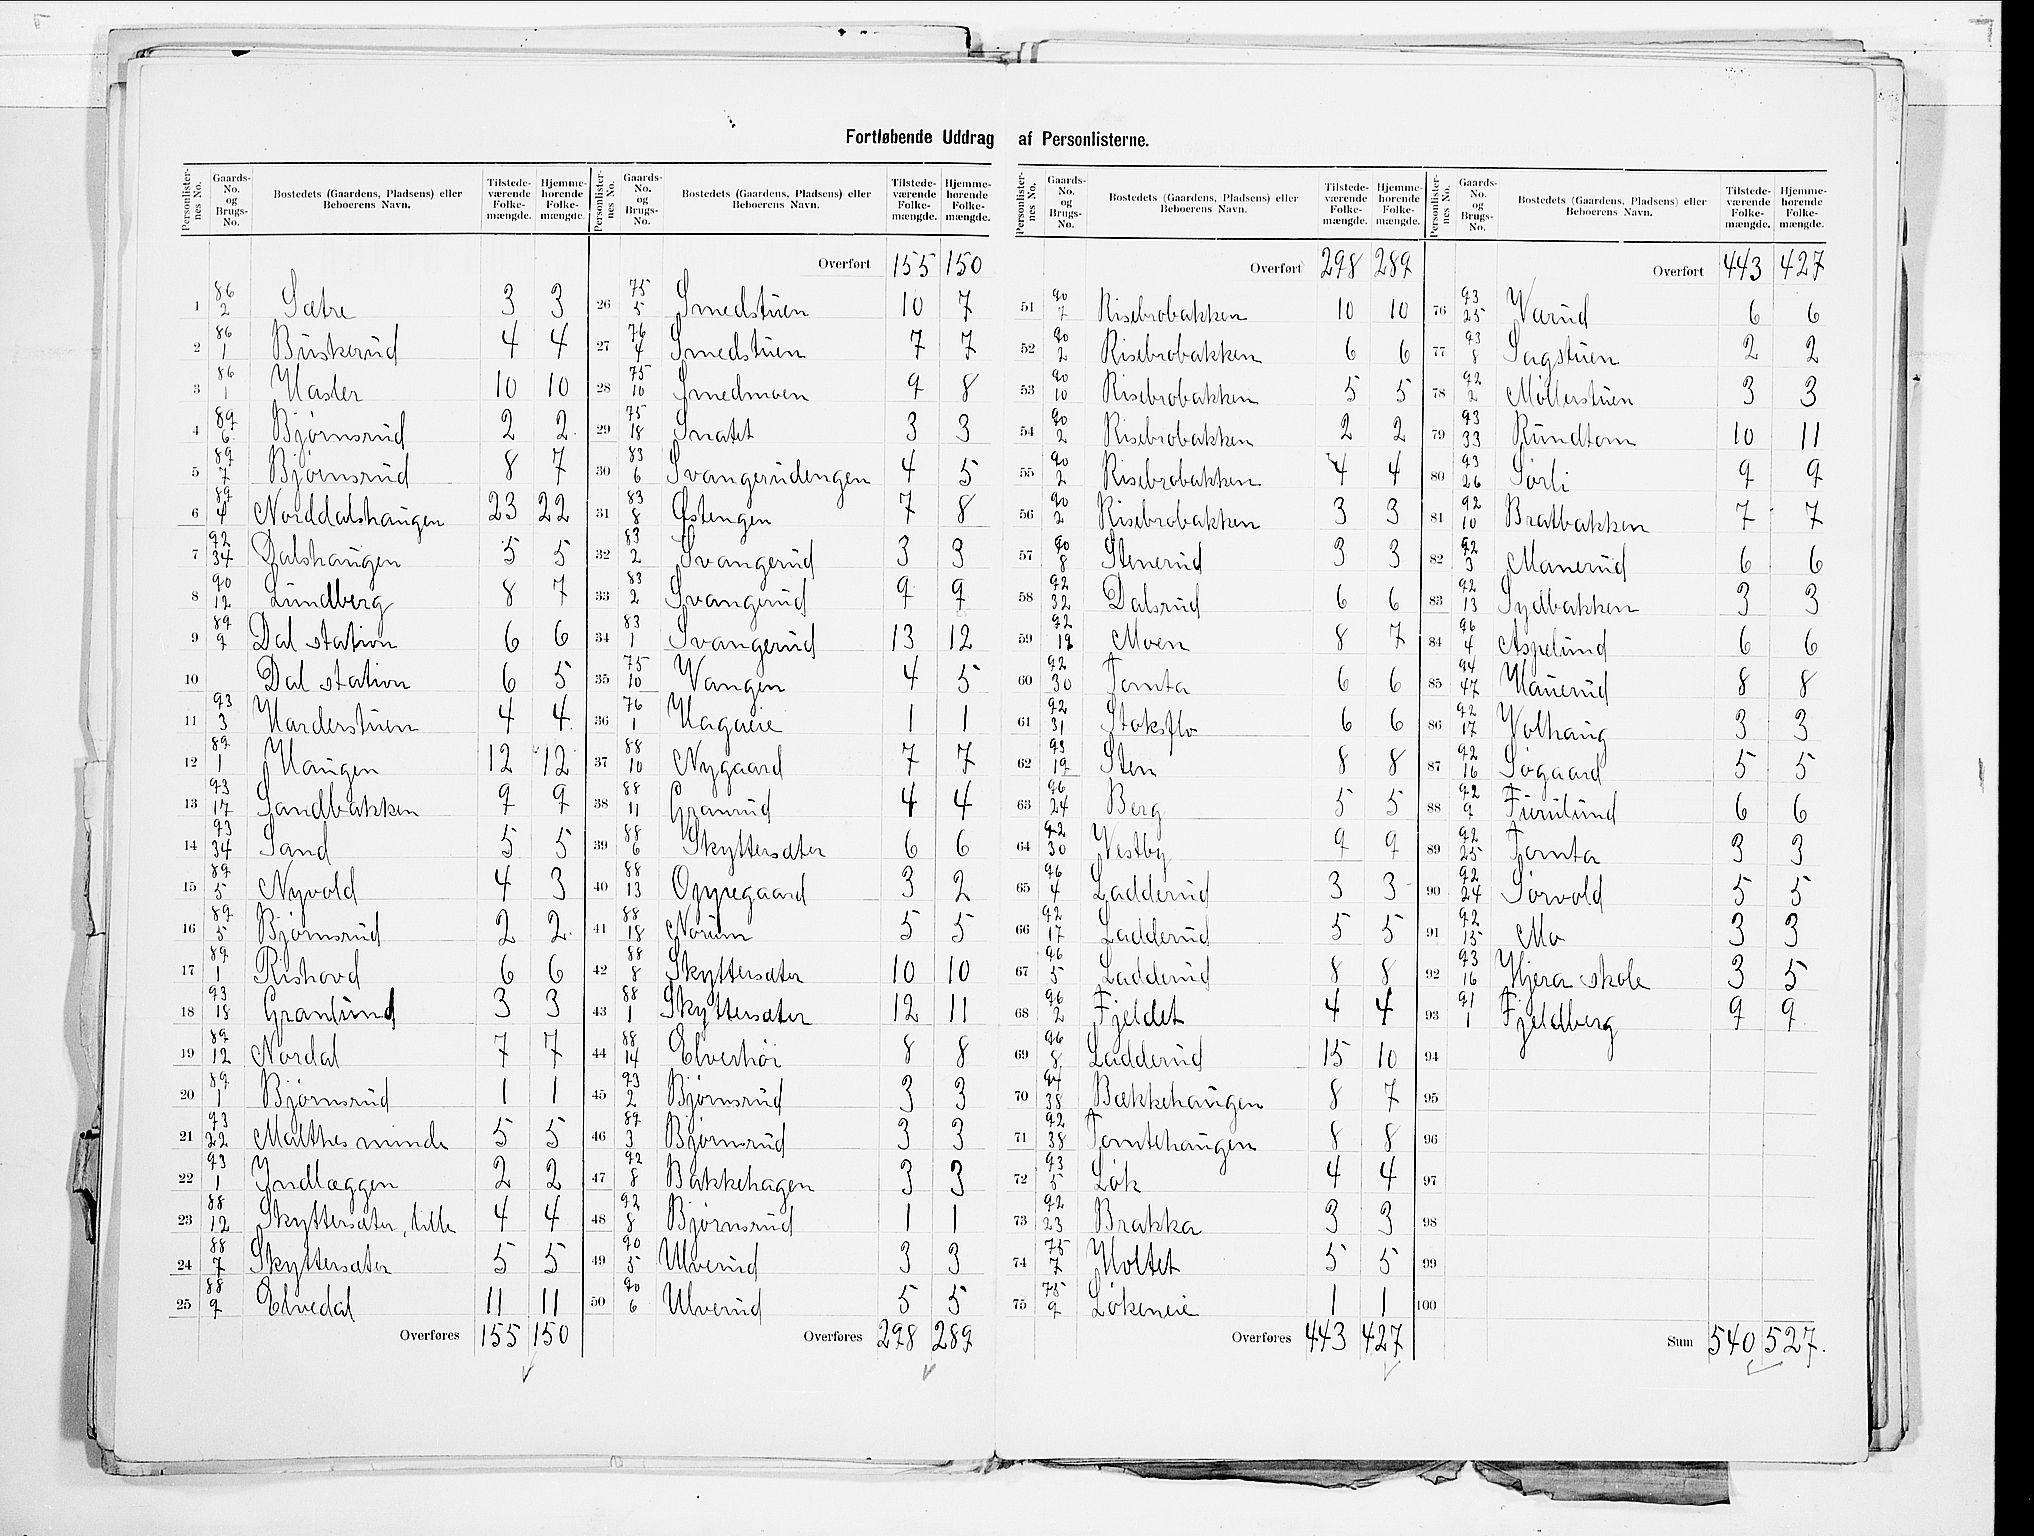 Fortløbende Uddrag af Personlisterne.
Personlister-nes No. | Gaards-No. og Brugs-No. | Bostedets (Gaardens, Pladsens) eller Beboerens Navn. | Tilstede-værende Folke-mængde. | Hjemme-hørende Folke-mængde.
1 86/2 Sætre 3 3
2 86/1 Buskerud 4 4
3 86/1 Hasler 10 10
4 89/6 Bjørnsrud 2 2
5 89/7 Bjørnsrud 8 7
6 89/4 Norddalshaugen 23 22
7 92/34 Dalshaugen 5 5
8 90/12 Lundberg 8 7
9 89/9 Dal station 6 6
10 Dal station 6 5
11 93/3 Harderstuen 4 4
12 89/1 Haugen 12 12
13 93/17 Sandbakken 9 9
14 93/34 Sand 5 5
15 89/5 Nyvold 4 3
16 89/5 Bjørnsrud 2 2
17 89/1 Rishovd 6 6
18 93/18 Granlund 3 3
19 89/12 Nordal 7 7
20 89/1 Bjørnsrud 1 1
21 93/22 Malthes minde 5 5
22 93/1 Indlæggen 2 2
23 88/12 Skyttersæter, lille 4 4
24 88/7 Skyttersæter 5 5
25 88/9 Elvedal 11 11
Overføres 155 150
Personlister-nes No. | Gaards-No. og Brugs-No. | Bostedets (Gaardens, Pladsens) eller Beboerens Navn. | Tilstede-værende Folke-mængde. | Hjemme-hørende Folke-mængde.
Overført 155 150
26 75/5 Smedstuen 10 7
27 76/4 Smedstuen 7 7
28 75/10 Smedmoen 9 8
29 75/18 Snatet 3 3
30 83/6 Svangerudengen 4 5
31 83/8 Østengen 7 8
32 83/2 Svangerud 3 3
33 83/2 Svangerud 9 9
34 83/1 Svangerud 13 12
35 75/10 Vangen 4 5
36 76/1 Hagaeie 1 1
37 88/10 Nygaard 7 7
38 88/11 Granrud 4 4
39 88/6 Skyttersæter 6 6
40 88/13 Oppegaard 3 2
41 88/18 Norum 5 5
42 88/8 Skyttersæter 10 10
43 88/1 Skyttersæter 12 11
44 88/14 Elverhöi 8 8
45 93/2 Bjørnsrud 3 3
46 89/3 Bjørnsrud 3 3
47 92/8 Bakkehagen 3 3
48 92/8 Bjørnsrud 1 1
49 90/5 Ulverud 3 3
50 90/6 Ulverud 5 5
Overføres 298 289
Personlister-nes No. | Gaards-No. og Brugs-No. | Bostedets (Gaardens, Pladsens) eller Beboerens Navn. | Tilstede-værende Folke-mængde. | Hjemme-hørende Folke-mængde.
Overført 298 289
51 90/7 Risebrobakken 10 10
52 90/2 Risebrobakken 6 6
53 90/10 Risebrobakken 5 5
54 90/2 Risebrobakken 2 2
55 90/2 Risebrobakken 4 4
56 90/2 Risebrobakken 3 3
57 90/8 Stenerud 3 3
58 92/32 Dalsrud 6 6
59 92/19 Moen 8 7
60 92/30 Tomta 6 6
61 92/31 Stoksflo 6 6
62 93/19 Sten 8 8
63 96/24 Berg 5 5
64 92/30 Vestby 9 9
65 96/4 Ladderud 3 3
66 92/17 Ladderud 5 5
67 96/5 Ladderud 8 8
68 96/2 Fjeldet 4 4
69 96/8 Ladderud 15 10
70 94/38 Bækkehaugen 8 7
71 92/38 Tomtehaugen 8 8
72 93/5 Løk 4 4
73 92/23 Brakka 3 3
74 75/7 Holtet 5 5
75 75/9 Løkeneie 1 1
Overføres 443 427
Personlister-nes No. | Gaards-No. og Brugs-No. | Bostedets (Gaardens, Pladsens) eller Beboerens Navn. | Tilstede-værende Folke-mængde. | Hjemme-hørende Folke-mængde.
Overført 443 427
76 93/25 Værud 6 6
77 93/8 Sagstuen 2 2
78 92/2 Möllerstuen 3 3
79 93/33 Rundtom 10 11
80 93/26 Sørli 9 9
81 92/10 Bratbakken 7 7
82 92/3 Manerud 6 6
83 92/13 Sydbakken 3 3
84 96/4 Aspelund 6 6
85 94/47 Hauerud 8 8
86 92/17 Volhaug 3 3
87 92/16 Søgaard 5 5
88 92/9 Furulund 6 6
89 92/25 Tomta 3 3
90 92/24 Sørvold 5 5
91 92/15 Mo 3 3
92 93/16 Hjera skole 3 5
93 91/1 Fjeldberg 9 9
94
95
96
97
98
99
100
Sum 540 527.